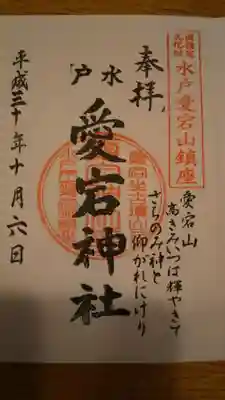 水戸愛宕山鎮座
奉拝
水戸
愛宕神社
平成三十年十月六日
愛宕山
高きみいつは輝やきて
さちのみ神と
仰がれにけり